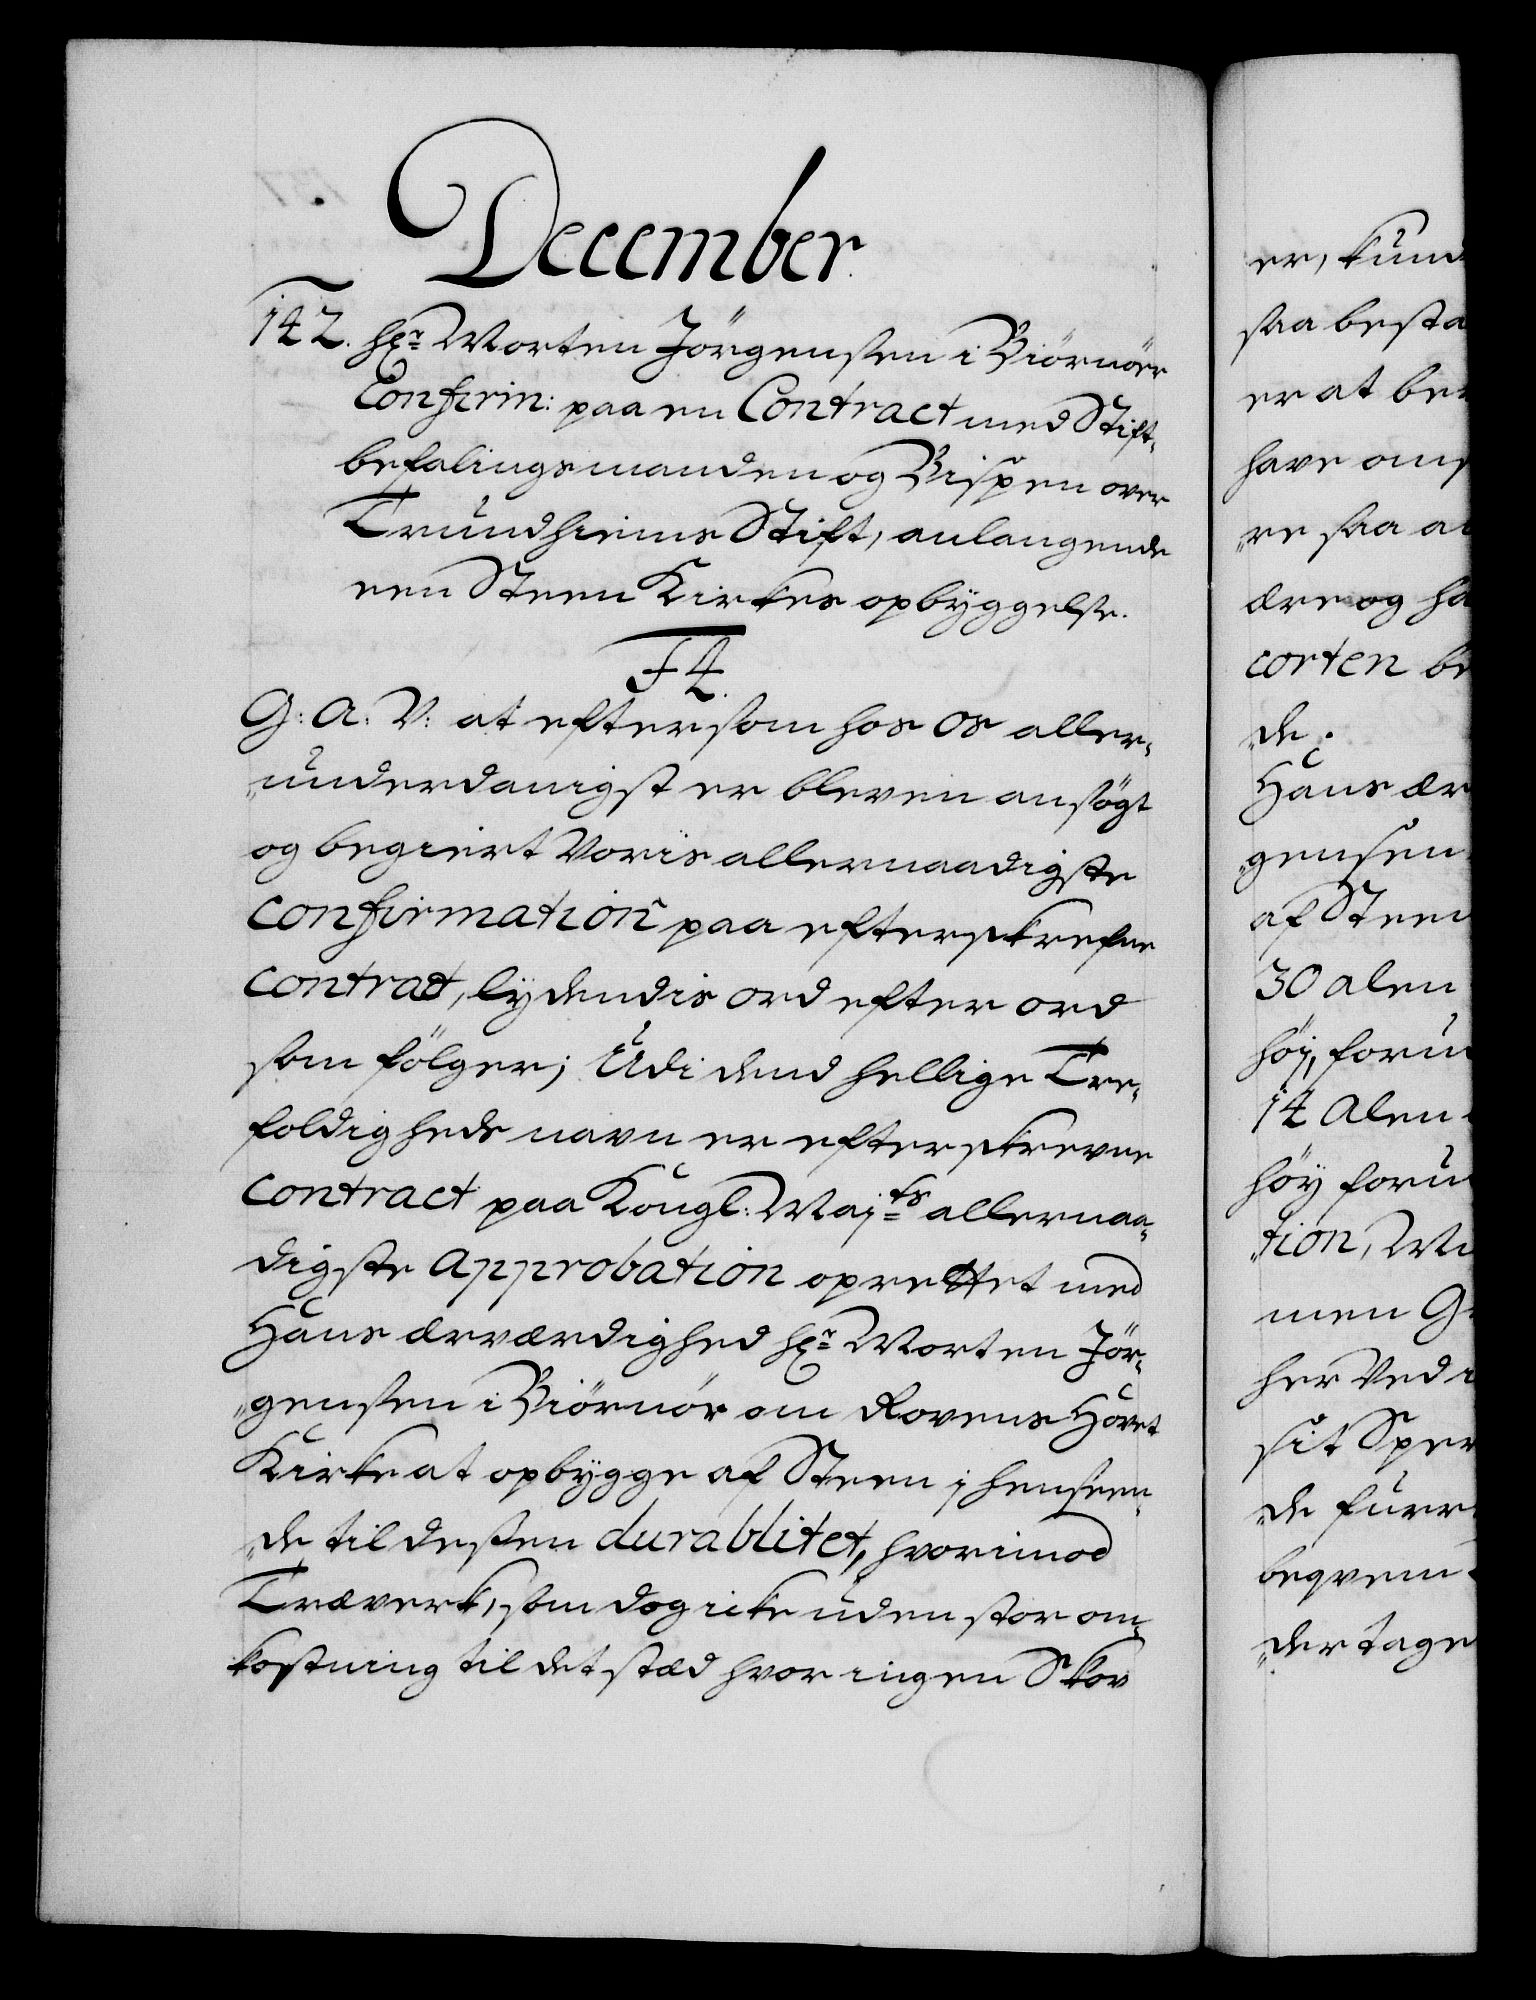 December
142. Hr Morten Jörgensen i Biörnöer
Confirm: paa en Contract med Stift-
befalingsmanden og Bispen over
Trundhiems Stift, anlangende
een Steen Kirkes opbyggelse.
F4.
G: A: V: at eftersom hos os aller-
underdanigst er bleven ansögt
og begiert Voris allernaadigste
Confirmation paa efterskrefne
Contract, lydendis ord efter ord
som fölger; Udi dend hellige Tre-
foldigheds navn er efterskrevne
Contract paa Kongl: Majts allernaa-
digste Approbation oprettet med
Hans ærværdighed Hr Morten Jör-
gensen i Biörnör om Rovens Hövet
Kirke at opbygge af Steen j henseen-
de til dessen durablitet, hvorimod
Træverk, som dog icke uden stor om-
kostning til det stæd hvor ingen Skov
er, kund
saa besta
er at be
have om
re saa a
ære og ha
corten be
de.
Hans ær
gensen
af Steen
30 alen
höj, foru
14 Alen
höy foru
tion, Mu
men G
her Ved
sit Sper
de furr
beqvem
der tage